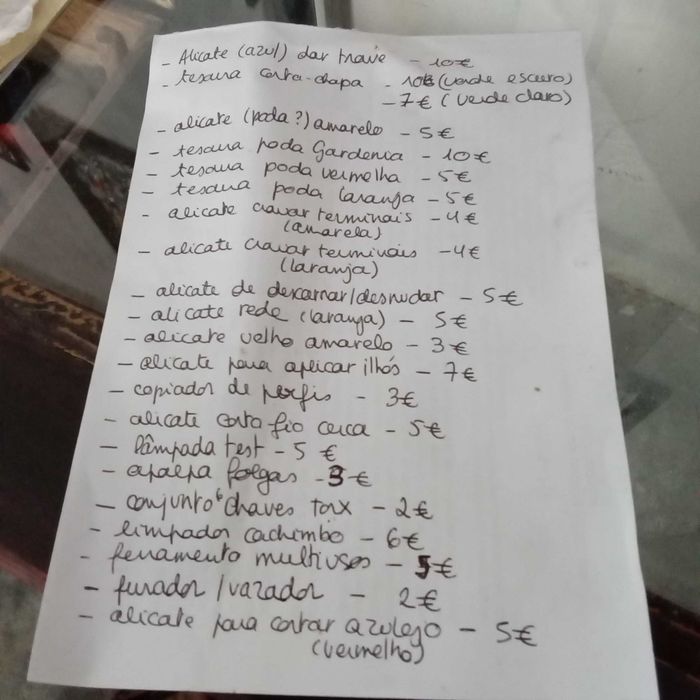 - Alicate (azul) dar travie - 10€
- tesoura corta-chapa - 10€ (verde escuro)
- 7€ (verde claro)
- alicate (poda?) amarelo - 5€
- tesoura poda Gardenia - 10€
- tesoura poda vermelha - 5€
- tesoura poda laranja - 5€
- alicate cravar terminais - 4€
(amarela)
- alicate cravar terminais - 4€
(laranja)
- alicate de descarnar/desnudar - 5€
- alicate rede (laranja) - 5€
- alicate velho amarelo - 3€
- alicate para aplicar ilhós - 7€
- copiador de perfis - 3€
- alicate corta fio cerca - 5€
- lâmpada test - 5 €
- apalpa folgas - 3€
- conjunto 6 chaves torx - 2€
- limpador cachimbo - 6€
- ferramenta multiusos - 5€
- furador / vazador - 2€
- alicate para cortar azulejo - 5€
(vermelho)